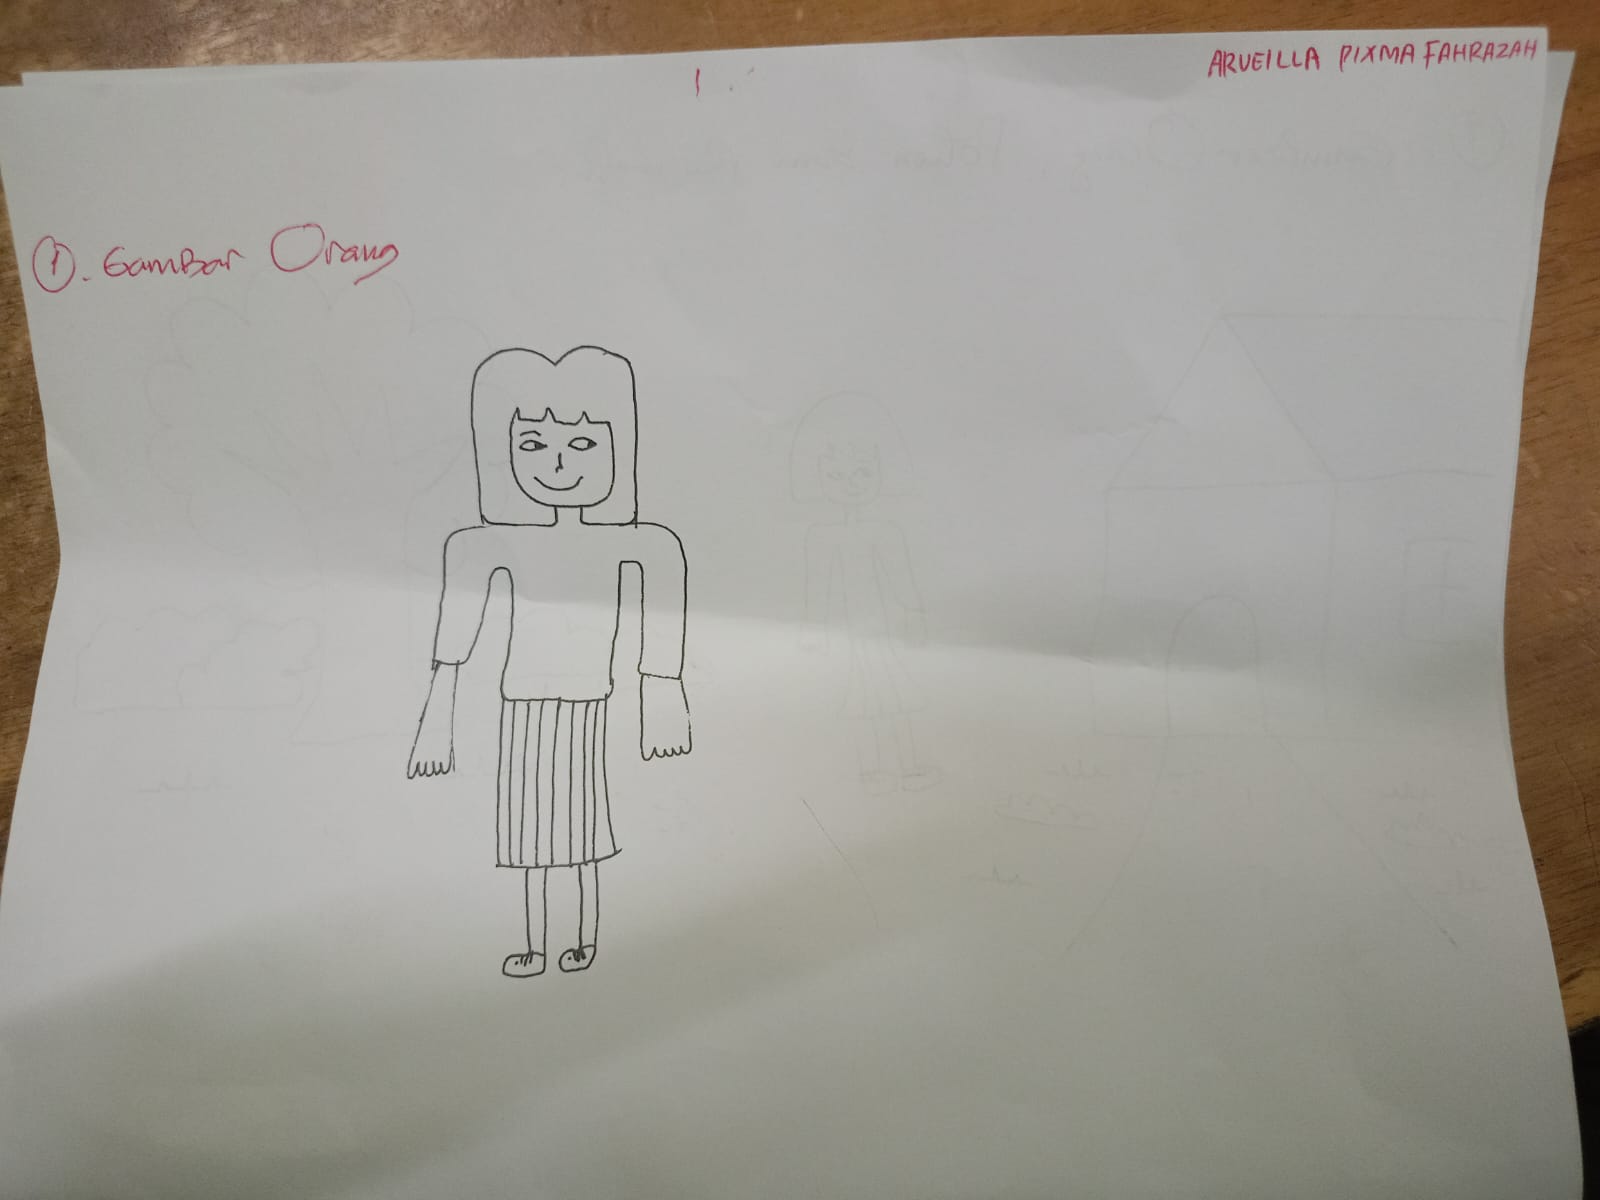 ARVEILLA PIXMA FAHRAZAH
1
①. Gambar Orang